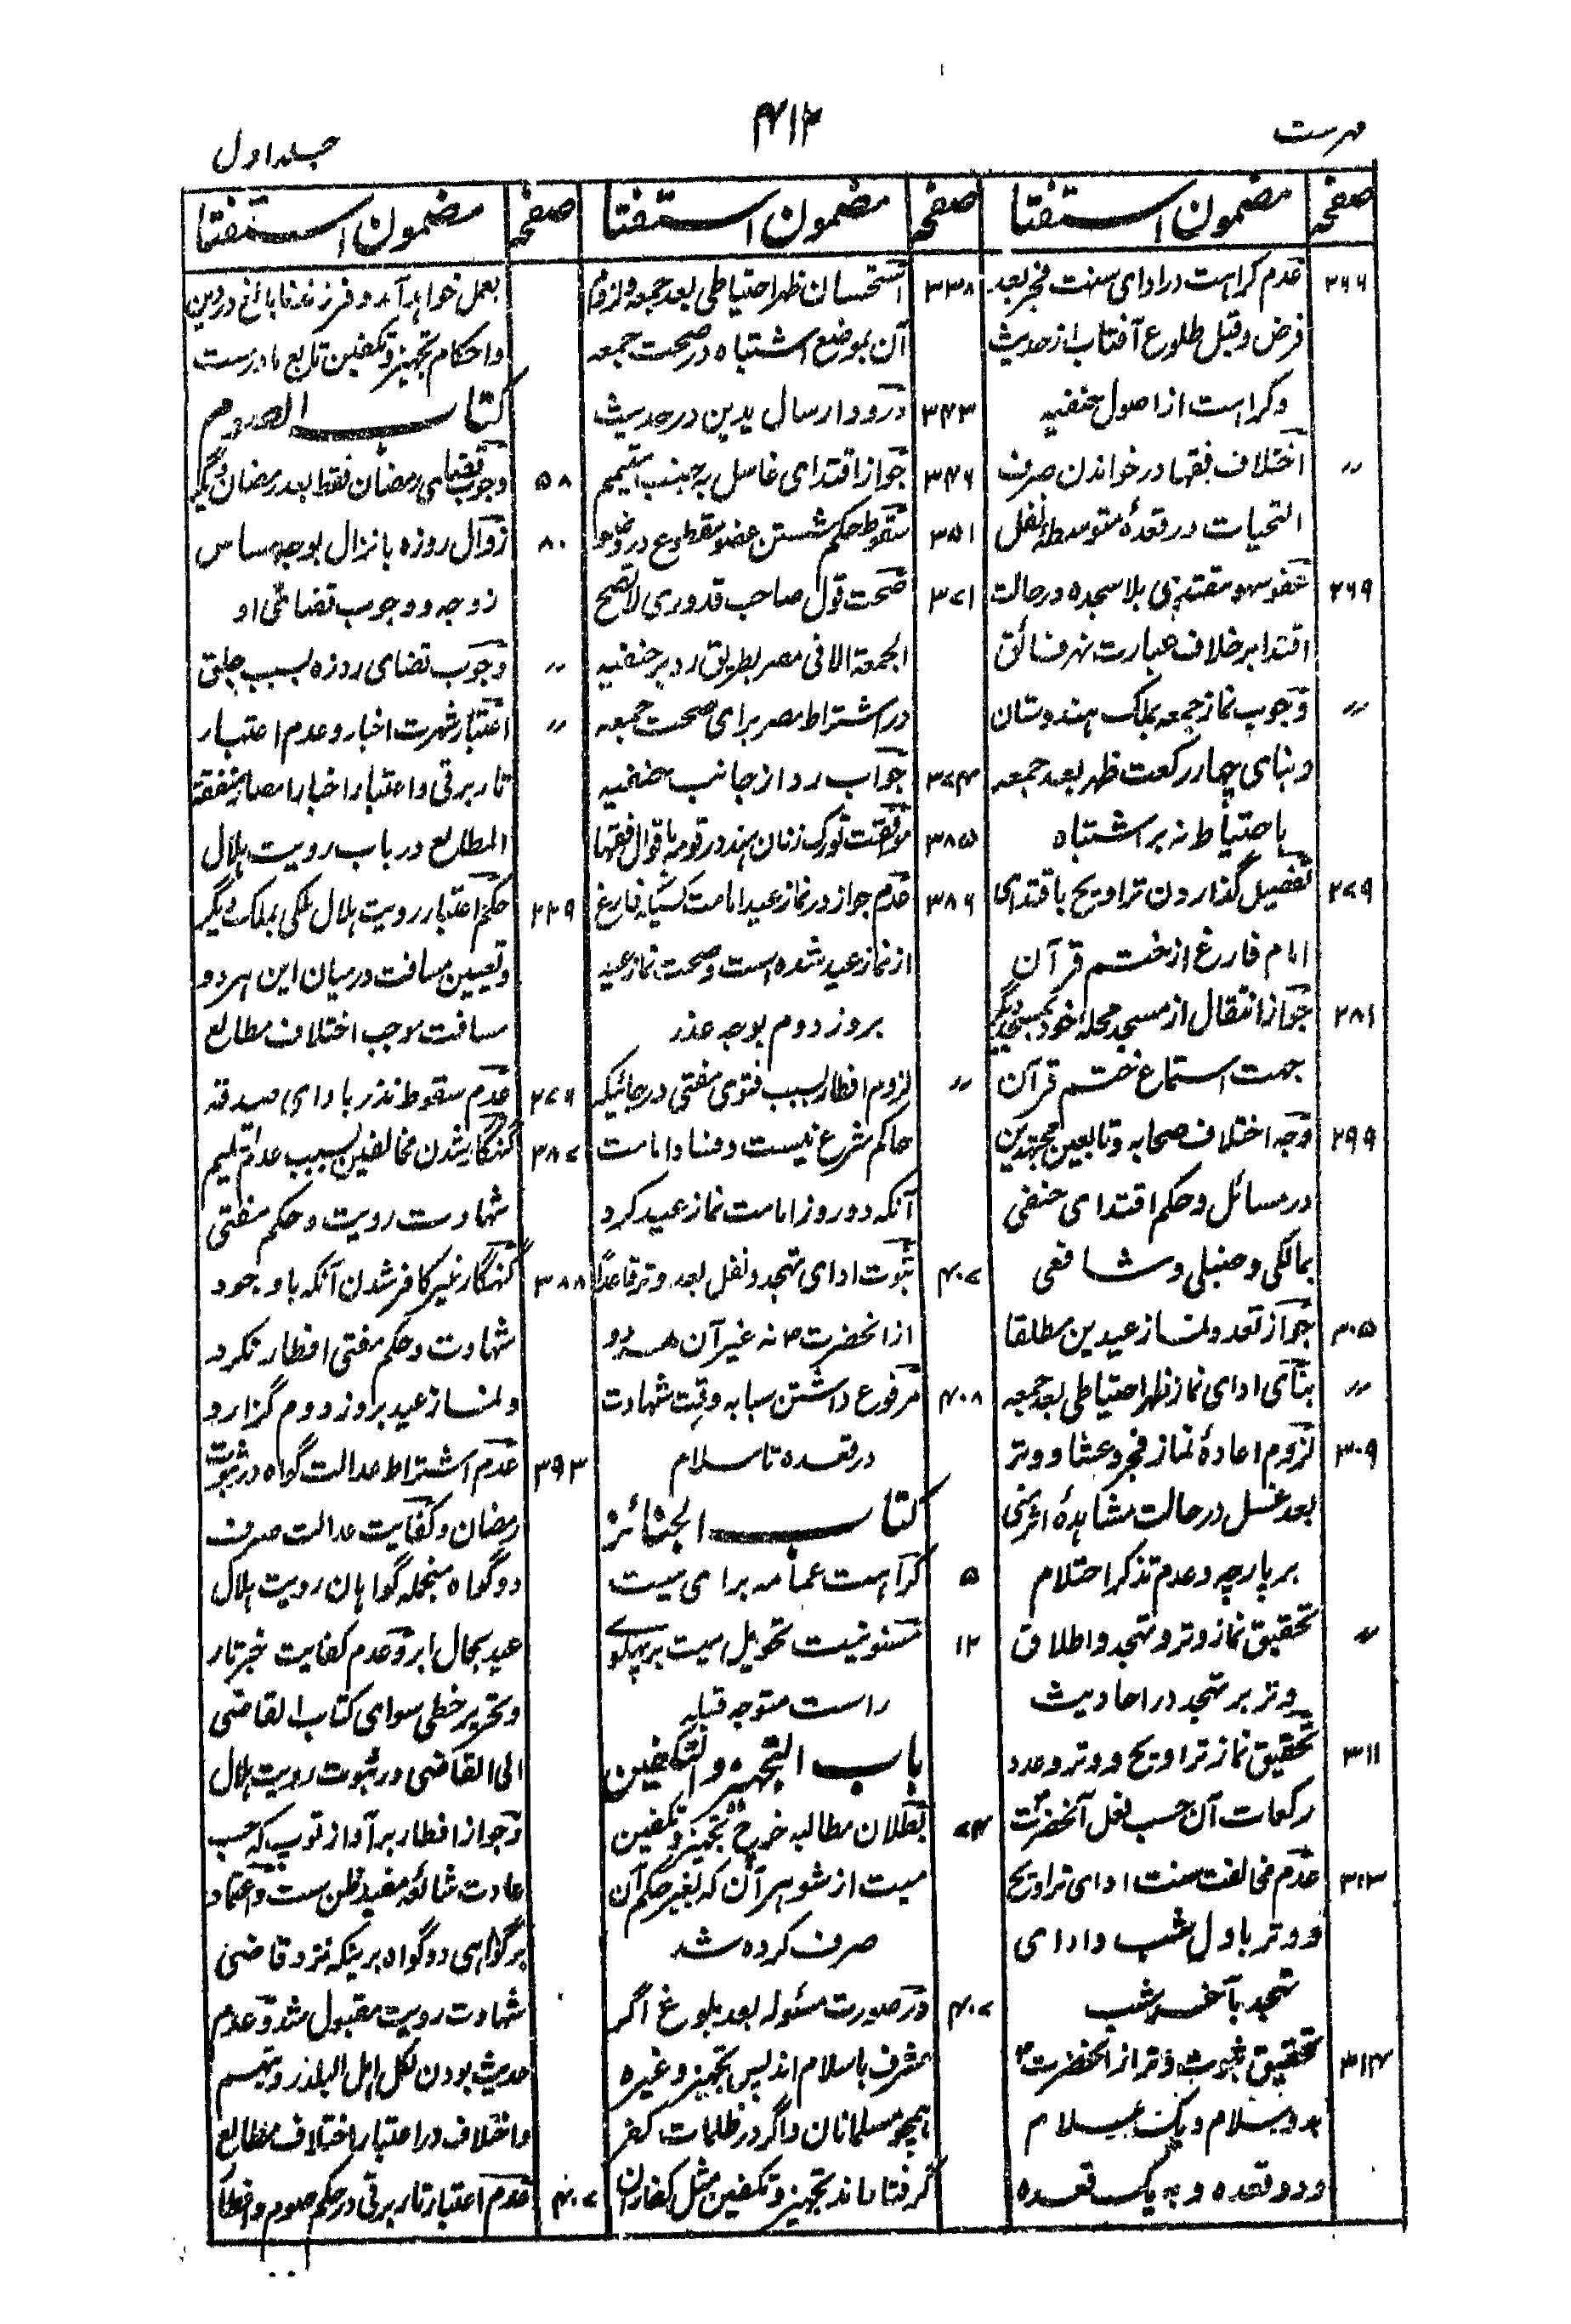 فهرست
۴۱۲
جلد اول
صفحه مضمون استفتا
۲۶۶ عدم کراهت در ادای سنت فجر بعد
فرض و قبل طلوع آفتاب از حدیث
و کراهت از اصول حنفیه
〃 اختلاف فقها در خواندن صرف
التحیات در قعدهٔ متوسطه نفل
۲۶۹ عفو سهو مقتدی بلا سجده در حالت
اقتدا بر خلاف عبارت نهر فائق
〃 وجوب نماز جمعه بملک هندوستان
و بنای چهار رکعت ظهر بعد جمعه
باحتیاط نه بر اشتباه
۲۷۹ تفصیل گذاردن تراویح باقتدای
امام فارغ از ختم قرآن
۲۸۱ جواز انتقال از مسجد محله خود بمسجد دیگر
بجهت استماع ختم قرآن
۲۹۹ وجه اختلاف صحابه و تابعین و مجتهدین
در مسائل و حکم اقتدای حنفی
بمالکی و حنبلی و شافعی
۳۰۵ جواز تعدد نماز عیدین مطلقا
〃 بنای ادای نماز ظهر احتیاطی بعد جمعه
۳۰۹ لزوم اعادهٔ نماز فجر و عشا و وتر
بعد غسل در حالت مشاهدهٔ اثر منی
بر پارچه و عدم تذکر احتلام
〃 تحقیق نماز وتر و تهجد و اطلاق
وتر بر تهجد در احادیث
۳۱۱ تحقیق نماز تراویح و وتر و عدد
رکعات آن حسب نفل آنحضرت
۳۱۳ عدم مخالفت سنت ادای تراویح
و وتر باول شب و ادای
تهجد بآخر شب
۳۱۴ تحقیق ثبوت وتر از آنحضرت
بدو سلام و یک سلام
و دو قعده و به یک قعده
صفحه مضمون استفتا
۳۳۸ استحسان ظهر احتیاطی بعد جمعه و لزوم
آن بموضع اشتباه در صحت جمعه
۳۴۳ درود ارسال یدین در حدیث
۳۴۶ جواز اقتدای غاسل به جنب متیمم
۳۵۱ سقوط حکم شستن عضو مقطوع در وضو
۳۷۱ صحت قول صاحب قدوری لا تصح
الجمعة الا فی مصر بطریق رد بر حنفیه
در اشتراط مصر برای صحت جمعه
۳۷۴ جواب رد از جانب حنفیه
۳۸۵ موافقت تورک زنان هند در قومه باقوال فقها
۳۸۶ عدم جواز در نماز عید امامت کسیکه فارغ
از نماز عید شده است و صحت نماز عید
بروز دوم بوجه عذر
〃 لزوم افطار بسبب فتوی مفتی در جائیکه
حاکم شرع نیست و فساد امامت
آنکه دو روز امامت نماز عید کرد
۴۰۷ ثبوت ادای تهجد و نفل بعد وتر قاعداً
از آنحضرت ۴ نه غیر آن هر دو
۴۰۸ مرفوع داشتن سبابه وقت شهادت
در قعده تا سلام
کتاب الجنائز
۵ کراهت عمامه برای میت
۱۲ مسنونیت تحویل میت بر پهلوی
راست متوجه قبله
باب التجهیز و التکفین
۷۴ بطلان مطالبه خرچ تجهیز و تکفین
میت از شوهر آن که بغیر حکم آن
صرف کرده شد
۴۰۷ در صورت مسئوله بعد بلوغ اگر
مشرف باسلام اند پس تجهیز و غیره
همچو مسلمانان و اگر در ظلمات کفر
گرفتار ماند تجهیز و تکفین مثل کفار ان
صفحه مضمون استفتا
بعمل خواهد آمد و فرزند نابالغ در دین
و احکام تجهیز و تکفین تابع مادرست
کتاب الصوم
۵۸ وجوب قضای رمضان فقط بعد رمضان دیگر
۸۰ زوال روزه بانزال بوجه مساس
زوجه و وجوب قضائی او
〃 وجوب قضای روزه بسبب جلق
〃 اعتبار شهرت اخبار و عدم اعتبار
تار برقی و اعتبار اخبار امصار متفقة
المطالع در باب رویت هلال
۲۲۹ حکم اعتبار رویت هلال ملکی بملک دیگر
و تعیین مسافت درمیان این هر دو
مسافت موجب اختلاف مطالع
۲۷۶ عدم سقوط نذر بادای صدقه
۳۸۷ گنهگار شدن مخالفین بسبب عدم تسلیم
شهادت رویت و حکم مفتی
۳۸۸ گنهگار غیر کافر شدن آنکه باوجود
شهادت و حکم مفتی افطار نکرد
و نماز عید بروز دوم گزارد
۳۹۳ عدم اشتراط عدالت گواه در ثبوت
رمضان و کفایت عدالت صرف
دو گواه منجمله گواهان رویت هلال
عید بحال ابر و عدم کفایت خبر تار
و تحریر خطی سوای کتاب القاضی
الی القاضی در ثبوت رویت هلال
و جواز افطار بر آواز توپ که حسب
عادت شائعه مفید ظن ست و اعتماد
بر گواهی دو گواه برینکه نزد قاضی
شهادت رویت مقبول شد و عدم
حدیث بودن لکل اهل البلد رویتهم
و اختلاف در اعتبار اختلاف مطالع
۴۰۷ عدم اعتبار تار برقی در حکم صوم و افطار